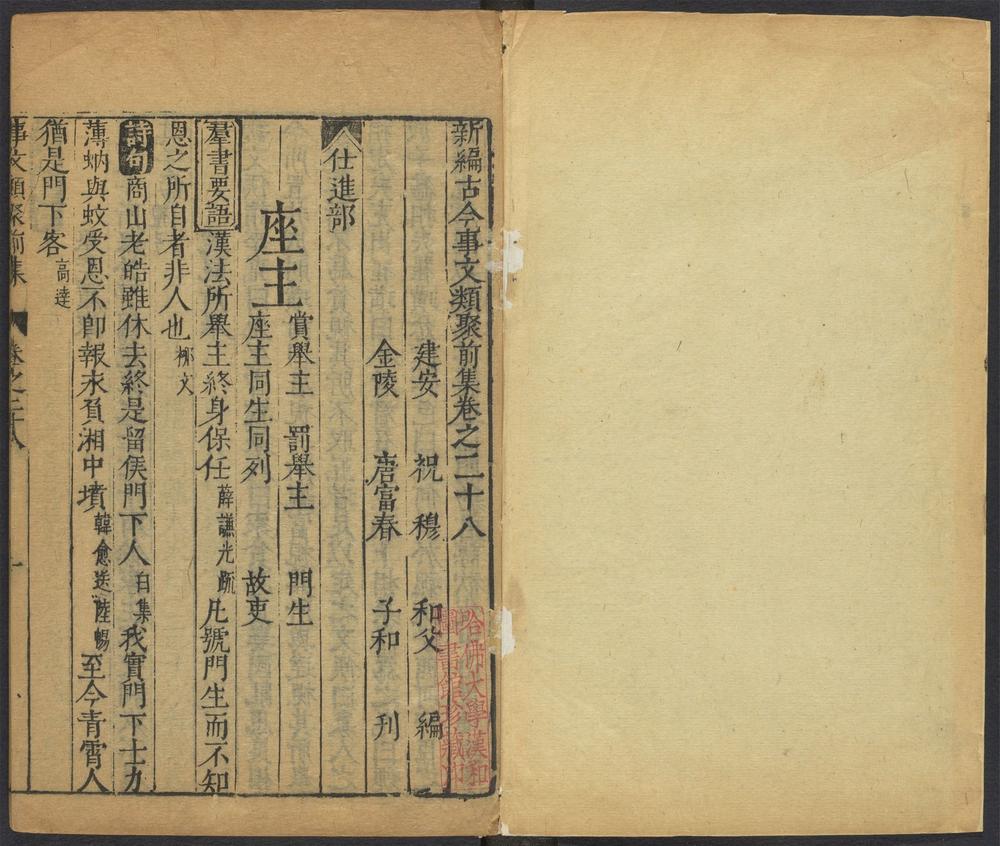 新編古今事文類聚前集卷之二十八
建安 祝穆 和父 編
金陵 唐富春 子和 刊
仕進部
座主
賞舉主 罰舉主 門生
座主同生同列 故吏
羣書要語漢法所舉主終身保任薛謙光疏凡號門生而不知
恩之所自者非人也柳文
詩句商山老皓雖休去終是留侯門下人白集我實門下士力
薄蚋與蚊受恩不即報永負湘中墳韓愈送陸暢至今青霄人
猶是門下客高達
事文類聚前集 卷之二十八 一
哈佛大學漢和
圖書館珍藏印